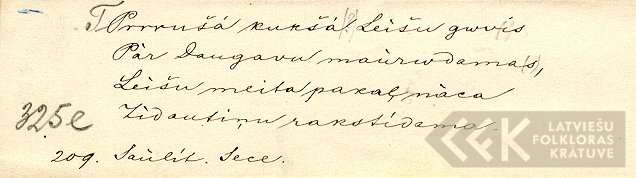 Prrrušá kukšá(?) Leišu gwvis
Pàr Daugavu maùrwdama(s),
Leišu meita pakaļ nàca
Zīdautiņu rakstīdama.
325e
209. Saùlīt. Sece.
LATVIEŠU
FOLKLORAS
KRĀTUVE